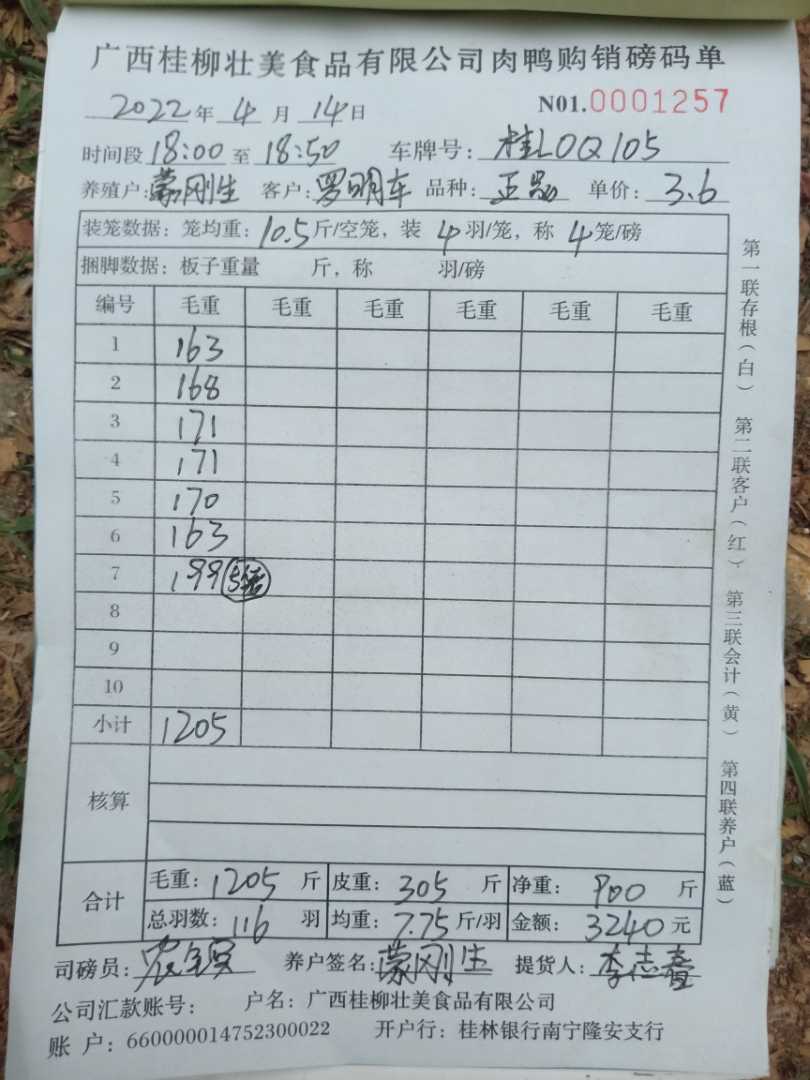 广西桂柳壮美食品有限公司肉鸭购销磅码单
2022年 4 月 14日 N01.0001257
时间段 18:00 至 18:50 车牌号: 桂L0Q105
养殖户: 蒙刚生 客户: 罗明车 品种: 正品 单价: 3.6
装笼数据: 笼均重: 10.5斤/空笼, 装 4 羽/笼, 称 4 笼/磅
捆脚数据: 板子重量 斤, 称 羽/磅
编号 毛重 毛重 毛重 毛重 毛重 毛重
1 163
2 168
3 171
4 171
5 170
6 163
7 199
8
9
10
小计 1205
核算
合计 毛重: 1205 斤 皮重: 305 斤 净重: 900 斤
总羽数: 116 羽 均重: 7.75 斤/羽 金额: 3240 元
司磅员: 养户签名: 蒙刚生 提货人: 李志
公司汇款账号: 户名: 广西桂柳壮美食品有限公司
账 户: 660000014752300022 开户行: 桂林银行南宁隆安支行
第一联存根(白) 第二联客户(红) 第三联会计(黄) 第四联养户(蓝)